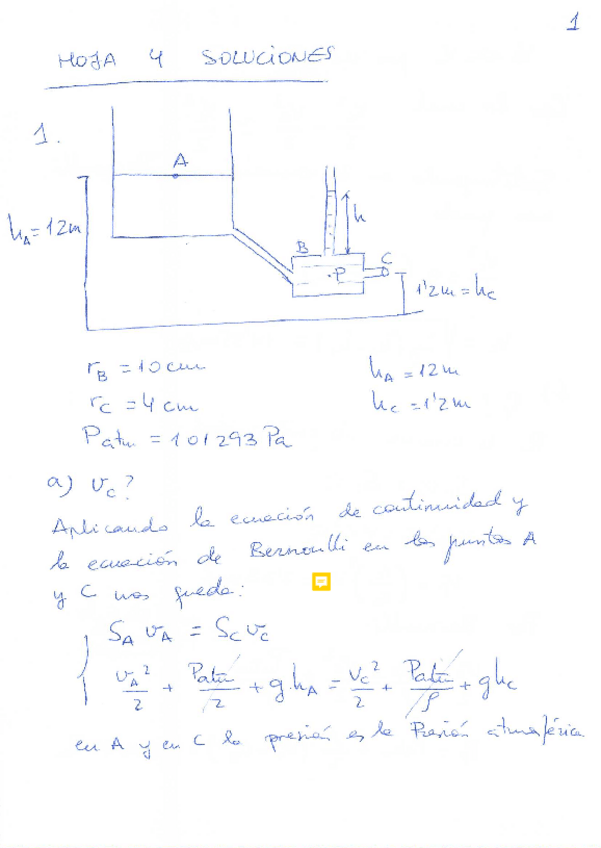 1
HOJA 4 SOLUCIONES
1.
A
h_A = 12m
h
B
C
P
1'2m = h_C
r_B = 10 cm
h_A = 12m
r_C = 4 cm
h_C = 1'2m
Patm = 101293 Pa
a) v_C?
Aplicando la ecuación de continuidad y
la ecuación de Bernoulli en los puntos A
y C nos queda:
S_A v_A = S_C v_C
v_A²/2 + Patm/2 + g.h_A = v_C²/2 + Patm/ρ + gh_C
en A y en C la presión es la Presión atmosférica